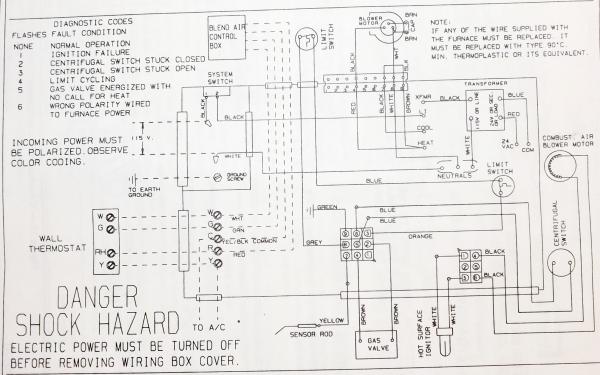 DIAGNOSTIC CODES
FLASHES FAULT CONDITION
NONE NORMAL OPERATION
1 IGNITION FAILURE
2 CENTRIFUGAL SWITCH STUCK CLOSED
3 CENTRIFUGAL SWITCH STUCK OPEN
4 LIMIT CYCLING
5 GAS VALVE ENERGIZED WITH
NO CALL FOR HEAT
6 WRONG POLARITY WIRED
TO FURNACE POWER
INCOMING POWER MUST
BE POLARIZED. OBSERVE
COLOR CODING.
115 V.
BLEND AIR
CONTROL
BOX
SYSTEM
SWITCH
BLACK
BLACK
WHITE
GROUND
SCREW
TO EARTH
GROUND
LIMIT
SWITCH
BLOWER
MOTOR
BRN
CAP
BRN
BLACK
WHT
BLK
RED
BLACK
WHITE
BLACK
NOTE:
IF ANY OF THE WIRE SUPPLIED WITH
THE FURNACE MUST BE REPLACED, IT
MUST BE REPLACED WITH TYPE 90°C.
MIN. THERMOPLASTIC OR ITS EQUIVALENT.
TRANSFORMER
XFMR
BLACK
115V OR LINE
24V OR SEC.
GRD
BLUE
RED
COOL
HEAT
WHITE
24
VAC
COM
NEUTRALS
LIMIT
SWITCH
COMBUST. AIR
BLOWER MOTOR
BLUE
BLUE
GREEN
GREY
ORANGE
BLUE
BLUE
CENTRIFUGAL
SWITCH
W
G
RH
Y
WALL
THERMOSTAT
W
G
C
R
Y
WHT
GRN
YEL/BLK COMMON
RED
TO A/C
BLACK
BLACK
BROWN
BROWN
GAS
VALVE
YELLOW
SENSOR ROD
HOT SURFACE
IGNITOR
WHITE
WHITE
DANGER
SHOCK HAZARD
ELECTRIC POWER MUST BE TURNED OFF
BEFORE REMOVING WIRING BOX COVER.